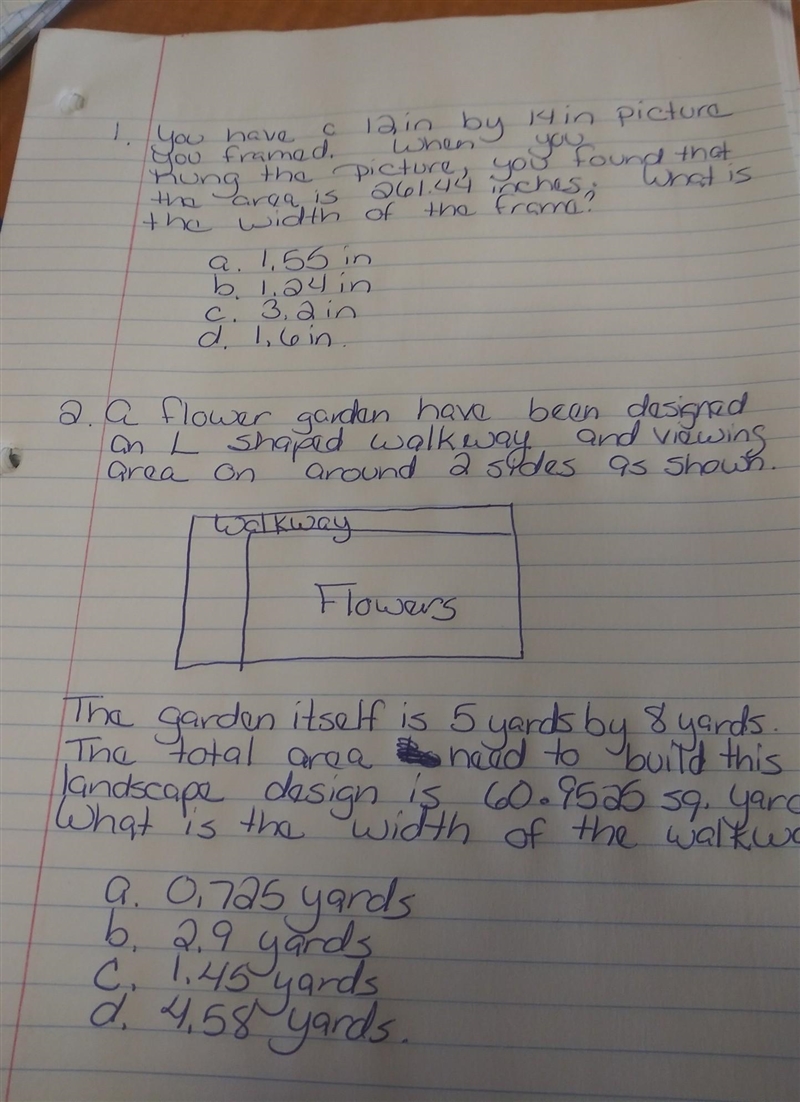 1. You have a 12in by 14in picture
you framed. When you
hung the picture, you found that
the area is 261.44 inches. What is
the width of the frame?
a. 1.55 in
b. 1.24 in
c. 3.2 in
d. 1.6 in.
2. a flower garden have been designed
an L shaped walkway and viewing
area on around 2 sides as shown.
Walkway
Flowers
The garden itself is 5 yards by 8 yards.
The total area need to build this
landscape design is 60.9525 sq. yard
What is the width of the walkwa
a. 0.725 yards
b. 2.9 yards
c. 1.45 yards
d. 4.58 yards.